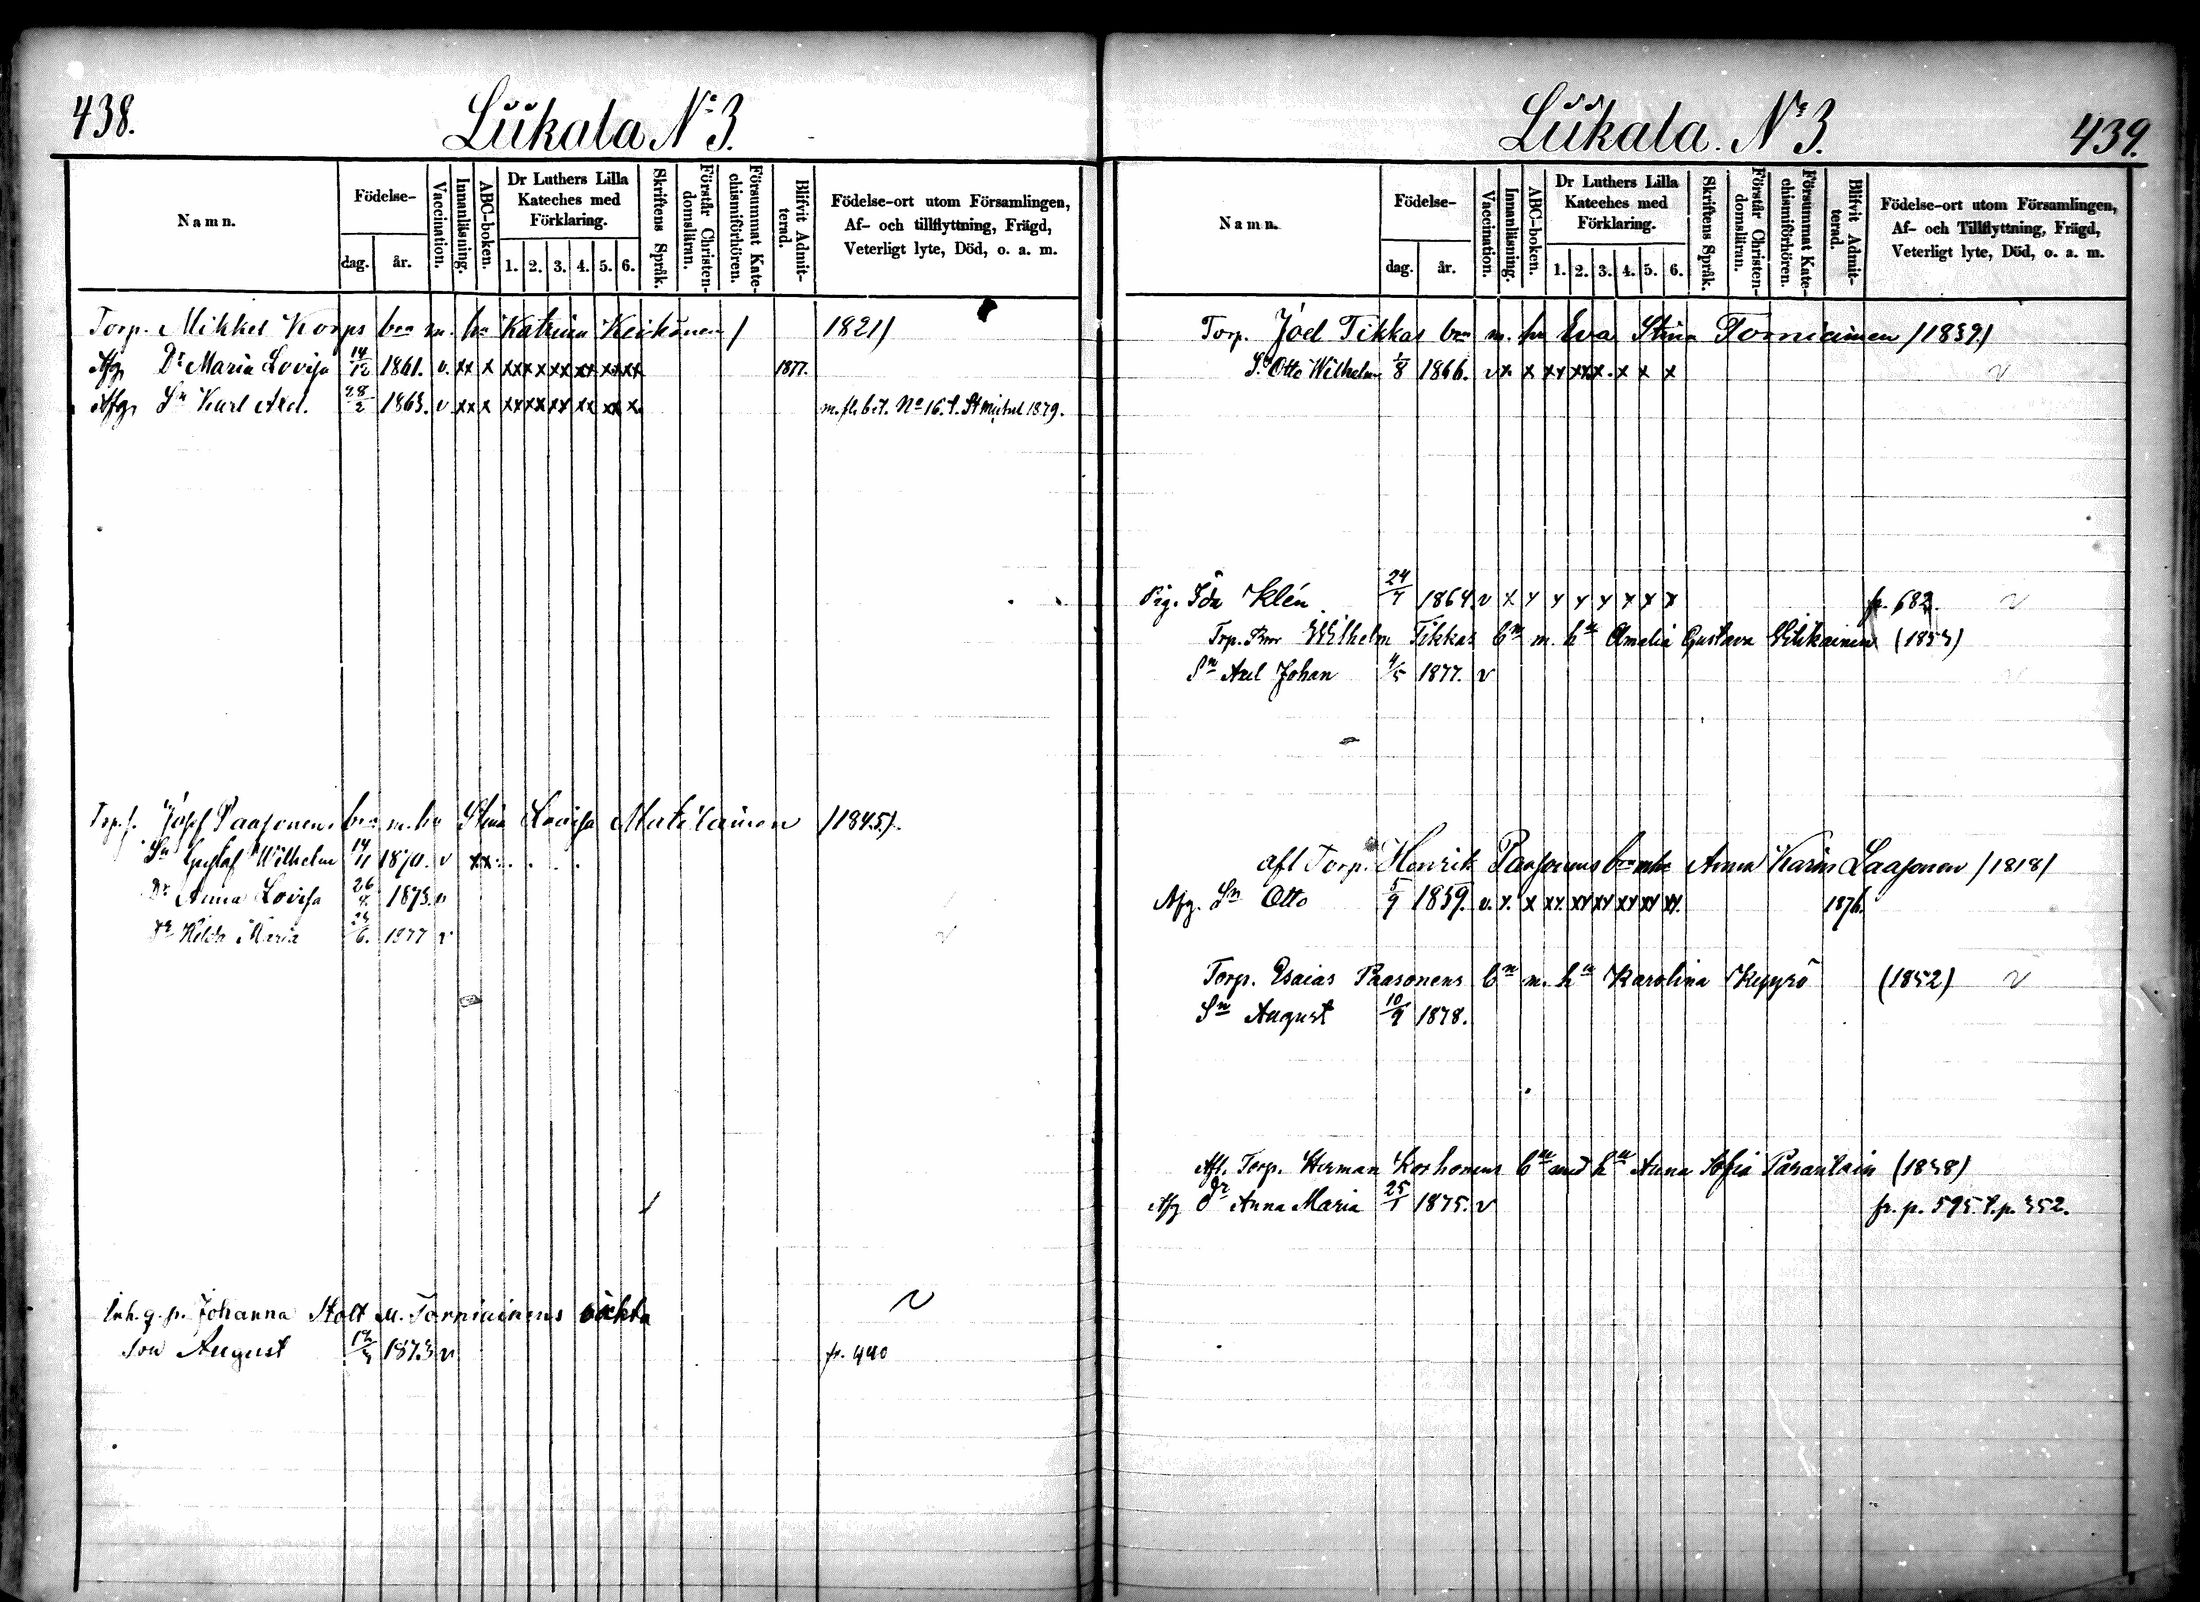 438.
Liikala Nº 3.
Namn.
Födelse-
dag.
år.
Vaccination.
Innanläsning.
ABC-boken.
Dr Luthers Lilla
Kateches med
Förklaring.
1. 2. 3. 4. 5. 6.
Skriftens Språk.
Förstår Christen-
domsläran.
Försummat Kate-
chismiförhören.
Blifvit Admit-
terad.
Födelse-ort utom Församlingen,
Af- och tillflyttning, Frägd,
Veterligt lyte, Död, o. a. m.
Torp. Mikkel Korps bn m. hu Katrina Keikönen / 1821/
Afg. Dr Maria Lovisa 14/12 1861. v. xx x xx x x xx xx xx 1877.
Afg. Sn Karl Axel. 28/2 1863. v xx x xx xx xx xx xx x. m. fl. bet. No 16. t. St Michel 1879.
Josef Paasonens bn m. hu Stina Lovisa Matilainen /1845/.
Sn Gustaf Wilhelm 14/11 1870. v xx
Dr Anna Lovisa 26/4 1873. v
Dr Hilda Maria 24/6. 1877 v
Inh. q. p. Johanna Stolt M. Torniainens
Son August 1873 v fr. 440
439.
Liikala. Nº 3.
Namn.
Födelse-
dag.
år.
Vaccination.
Innanläsning.
ABC-boken.
Dr Luthers Lilla
Kateches med
Förklaring.
1. 2. 3. 4. 5. 6.
Skriftens Språk.
Förstår Christen-
domsläran.
Försummat Kate-
chismiförhören.
Blifvit Admit-
terad.
Födelse-ort utom Församlingen,
Af- och Tillflyttning, Frägd,
Veterligt lyte, Död, o. a. m.
Torp. Joel Tikkas bn m. hu Eva Stina Torniainen /1839/
Sn Otto Wilhelm 1/8 1866. v x. x xx xx x. x x x v
Pig. Ida Klén 24/7 1864. v x x x x x x x x fr. 682. v
Trp. Bror Wilhelm Tikkas bn m. hu Amalia Gustava (1853)
Sn Axel Johan 4/5 1877. v
Afl Torp. Henrik Paasonens bn m hu Anna Karin Laasonen /1818/
Afg. Sn Otto 5/9 1859. v. x. x xx. xx xx xx xx xx. 1876.
Torp. Esaias Paasonens bn m. hu Karolina Kepyrö (1852) v
Sn August 10/9 1878.
Afl. Torp. Herman Korhonens bn med hu Anna Sofia Parantain (1838)
Afg Dr Anna Maria 25/1 1875. v fr. p. 595. t. p. 352.